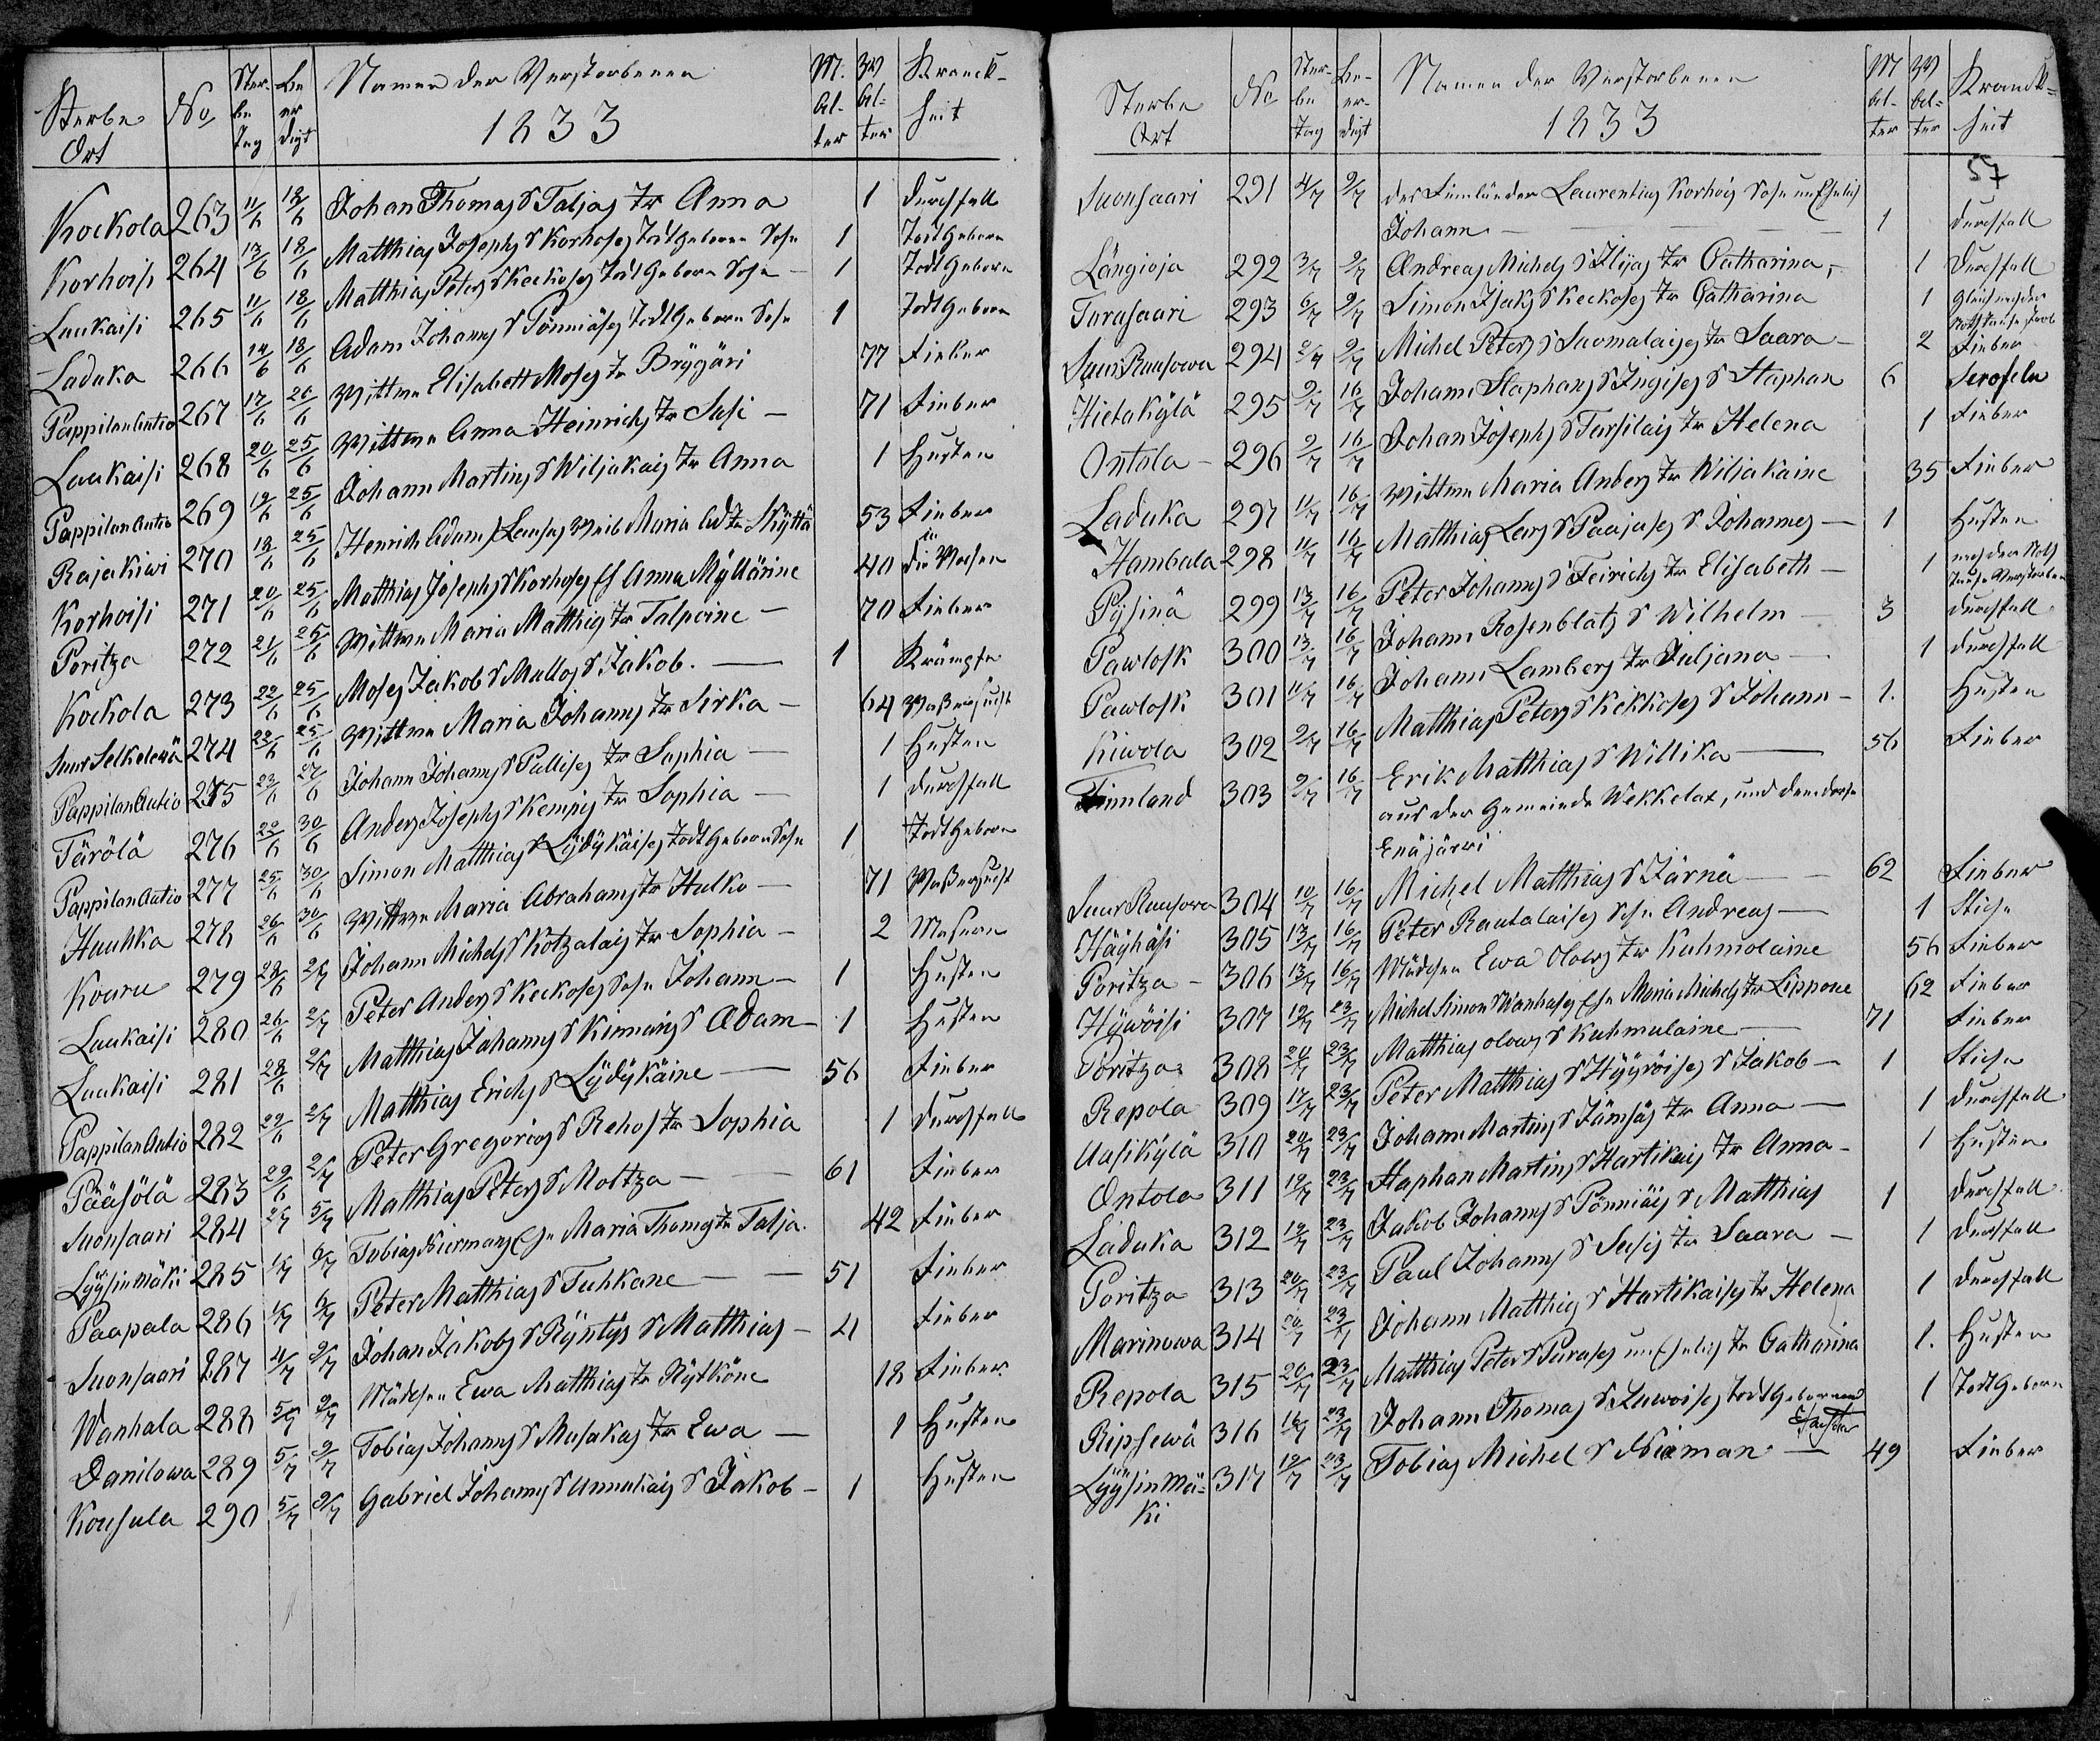 Sterbe Ort No Ster-be Tag Be er digt Namen der Verstorbenen 1833 M. Al-ter W Al-ter Kranck-heit
Kockola 263 11/6 18/6 Johan Thomas S Taljas Tr Anna 1 Durchfall
Korhoisi 264 13/6 18/6 Matthias Josephs S Korhoses Todt Geborne Sohn 1 Todt Geborn
Laukaisi 265 11/6 18/6 Matthias Peters S Keckoses Todt Geborn Sohn - 1 Todt Geborn
Laduka 266 14/6 18/6 Adam Johans S Pönniäses Todt Geborne Sohn 1 Todt Geborn
Pappilan Autio 267 17/6 20/6 Wittwe Elisabett Moses Tr Brÿgäri 77 Fieber
Laukaisi 268 20/6 25/6 Wittwe Anna Heinrichs Tr Susi - 71 Fieber
Pappilan Autio 269 19/6 25/6 Johann Martins S Wiljakais Tr Anna 1 Husten
Rajakiwi 270 18/6 25/6 Henrich Adams S Weib Maria Ad Tr Skÿttä 53 Fieber
Korhoisi 271 20/6 25/6 Matthias Josephs S Korhoses Anna Mÿllärine 40 in die Wochen
Poritza 272 21/6 25/6 Wittwe Maria Matthies Tr Talpoine - 70 Fieber
Kockola 273 22/6 25/6 Moses Jakob S Mullos S Jakob. - 1 Krämpfe
Suur Selkelewä 274 22/6 25/6 Wittwe Maria Johans Tr Sirka - 64 Waßersucht
Pappilan Autio 275 23/6 27/6 Johann Johans S Pullises Tr Sophia - 1 Husten
Tärölä 276 29/6 30/6 Anders Josephs S Kempis Tr Sophia - 1 Durchfall
Pappilan Autio 277 25/6 30/6 Simon Matthias S Lÿdÿkäises Todt Geborn Sohn 1 Todt Geborn
Hauhka 278 26/6 30/6 Wittwe Maria Abrahams Tr Hulko - 71 Waßersucht
Koaru 279 28/6 2/7 Johann Michels S Kotzalais Tr Sophia - 2 Masern
Laukaisi 280 26/6 2/7 Peter Anders S Keckoses Sohn Johann - 1 Husten
Laukaisi 281 28/6 2/7 Matthias Johans S Kinnais S Adam - 1 Husten
Pappilan Autio 282 29/6 2/7 Matthias Erichs S Lÿdÿkäine - 56 Fieber
Pääsölä 283 29/6 2/7 Peter Gregorius S Rehos Tr Sophia 1 Durchfall
Suonsaari 284 2/7 5/7 Matthias Peters S Moltza - 61 Fieber
Lÿÿsinmäki 285 1/7 6/7 Tobias Niermans Maria Thomas Tr Talja. 42 Fieber
Paapala 286 1/7 6/7 Peter Matthias S Tuhkane - - 51 Fieber
Suonsaari 287 4/7 9/7 Johan Jakobs S Rÿntÿs S Matthias - 4 Fieber
Wanhala 288 5/7 9/7 Mädchen Ewa Matthias Tr Rÿtköne 18 Fieber.
Danilowa 289 5/7 9/7 Tobias Johans S Musakas Tr Ewa - 1 Husten
Kousula 290 5/7 9/7 Gabriel Johans S Unnukais S Jakob - 1 Husten
Sterbe Ort No Ster-be Tag Be-er-digt Namen der Verstorbenen 1833 M Al-ter W Al-ter Kranck-heit
57
Suonsaari 291 4/7 9/7 des Finnländer Laurentius Korhois Sohn unEhelich
Johann - 1 Durchfall
Längioja 292 3/7 9/7 Andreas Michels S Ilijas Tr Catharina, - 1 Durchfall
Turusaari 293 6/7 9/7 Simon Isaks S Keckoses Tr Catharina 1 Gleich nach der Nothtaufe starb
Suur Ruusowa 294 2/7 9/7 Michel Peters S Suomalaises Tr Saara - 2 Fieber
Hietakÿlä 295 9/7 16/7 Johann Staphans S Ingises S Staphan 6 Scrofeln
Ontola - 296 9/7 16/7 Johan Josephs S Tursilais Tr Helena 1 Fieber
Laduka 297 11/7 16/7 Wittwe Maria Anders Tr Wiljakaine 35 Fieber
Hambala 298 11/7 16/7 Matthias Lars S Paajases S Johannes - 1 Husten
Pÿsinä 299 13/7 16/7 Peter Johans S Feirichs Tr Elisabeth - 1 nach der Noth Taufe Verstorben
Pawlosk 300 13/7 16/7 Johann Rosenblatz S Wilhelm 3 Durchfall
Pawlosk 301 11/7 16/7 Johann Lambers Tr Juljana - 1 Durchfall
Kiwola 302 9/7 16/7 Matthias Peters S Kikkoses S Johann - 1. Husten
Finnland 303 9/7 16/7 Erik Matthias S Willika - 56 Fieber
aus der Gemeinde Wekkelax, und dem dorfe
Enäjärwi
Suur Ruusowa 304 10/7 16/7 Michel Matthias S Järnä - 62 Fieber
Häÿhäsi 305 13/7 16/7 Peter Rautalaises Sohn Andreas - 1 Stiche
Poritza - 306 13/7 16/7 Mädchen Ewa Olows Tr Kuhmolaine 56 Fieber
Hÿwöisi 307 19/7 23/7 Michel Simon S Wanhases Maria Michels Tr Lippone 62 Fieber
Poritza 308 20/7 23/7 Matthias Olows S Kuhmulaine - 71 Fieber
Repola 309 17/7 23/7 Peter Matthias S Hÿÿröises S Jakob - 1 Stiche
Uusikÿlä 310 20/7 23/7 Johann Martins S Jämsäs Tr Anna - 1 Durchfall
Ontola 311 19/7 23/7 Staphan Martins S Hartikais Tr Anna - 1 Husten
Laduka 312 19/7 23/7 Jakob Johans S Pönniäis S Matthias 1 Durchfall
Poritza 313 20/7 23/7 Paul Johans S Susis Tr Saara - 1 Durchfall
Marinowa 314 20/7 23/7 Johann Matthias S Hartikaises Tr Helena 1 Durchfall
Repola 315 20/7 23/7 Matthias Peters S Purases un Eheliches Tr Catharina 1. Husten
Ripsewä 316 16/7 23/7 Johann Thomas S Luwoises Todt Geborne Tochter 1 Todt Geborn
Lÿÿsinmä-ki 317 19/7 23/7 Tobias Michel S Niäman - 49 Fieber